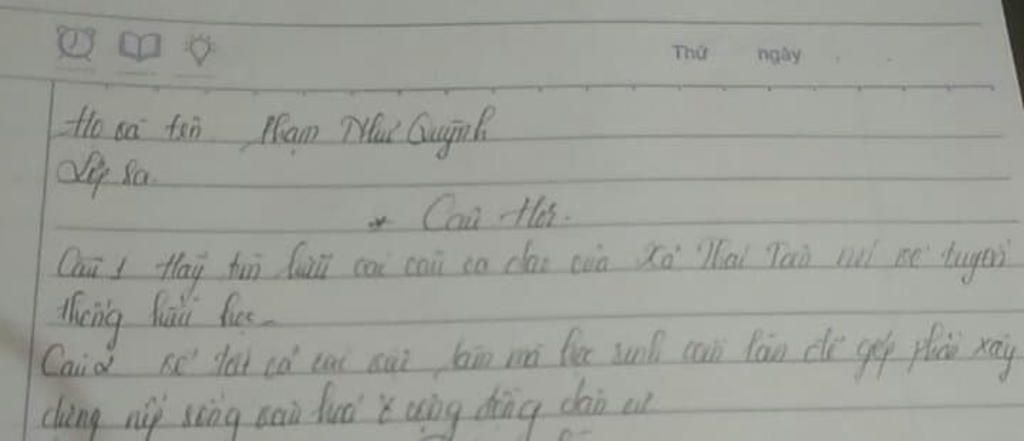 Thứ ngày
Họ và tên Phạm Như Quỳnh
Lớp 8a.
* Câu Hỏi.
Câu 1 Hãy tìm hiểu các câu ca dao của Xã Thái nói về truyền
thống hiếu học.
Câu 2 Kể tất cả các việc làm mà học sinh cần làm để góp phần xây
dựng nếp sống văn hoá ở cộng đồng dân cư